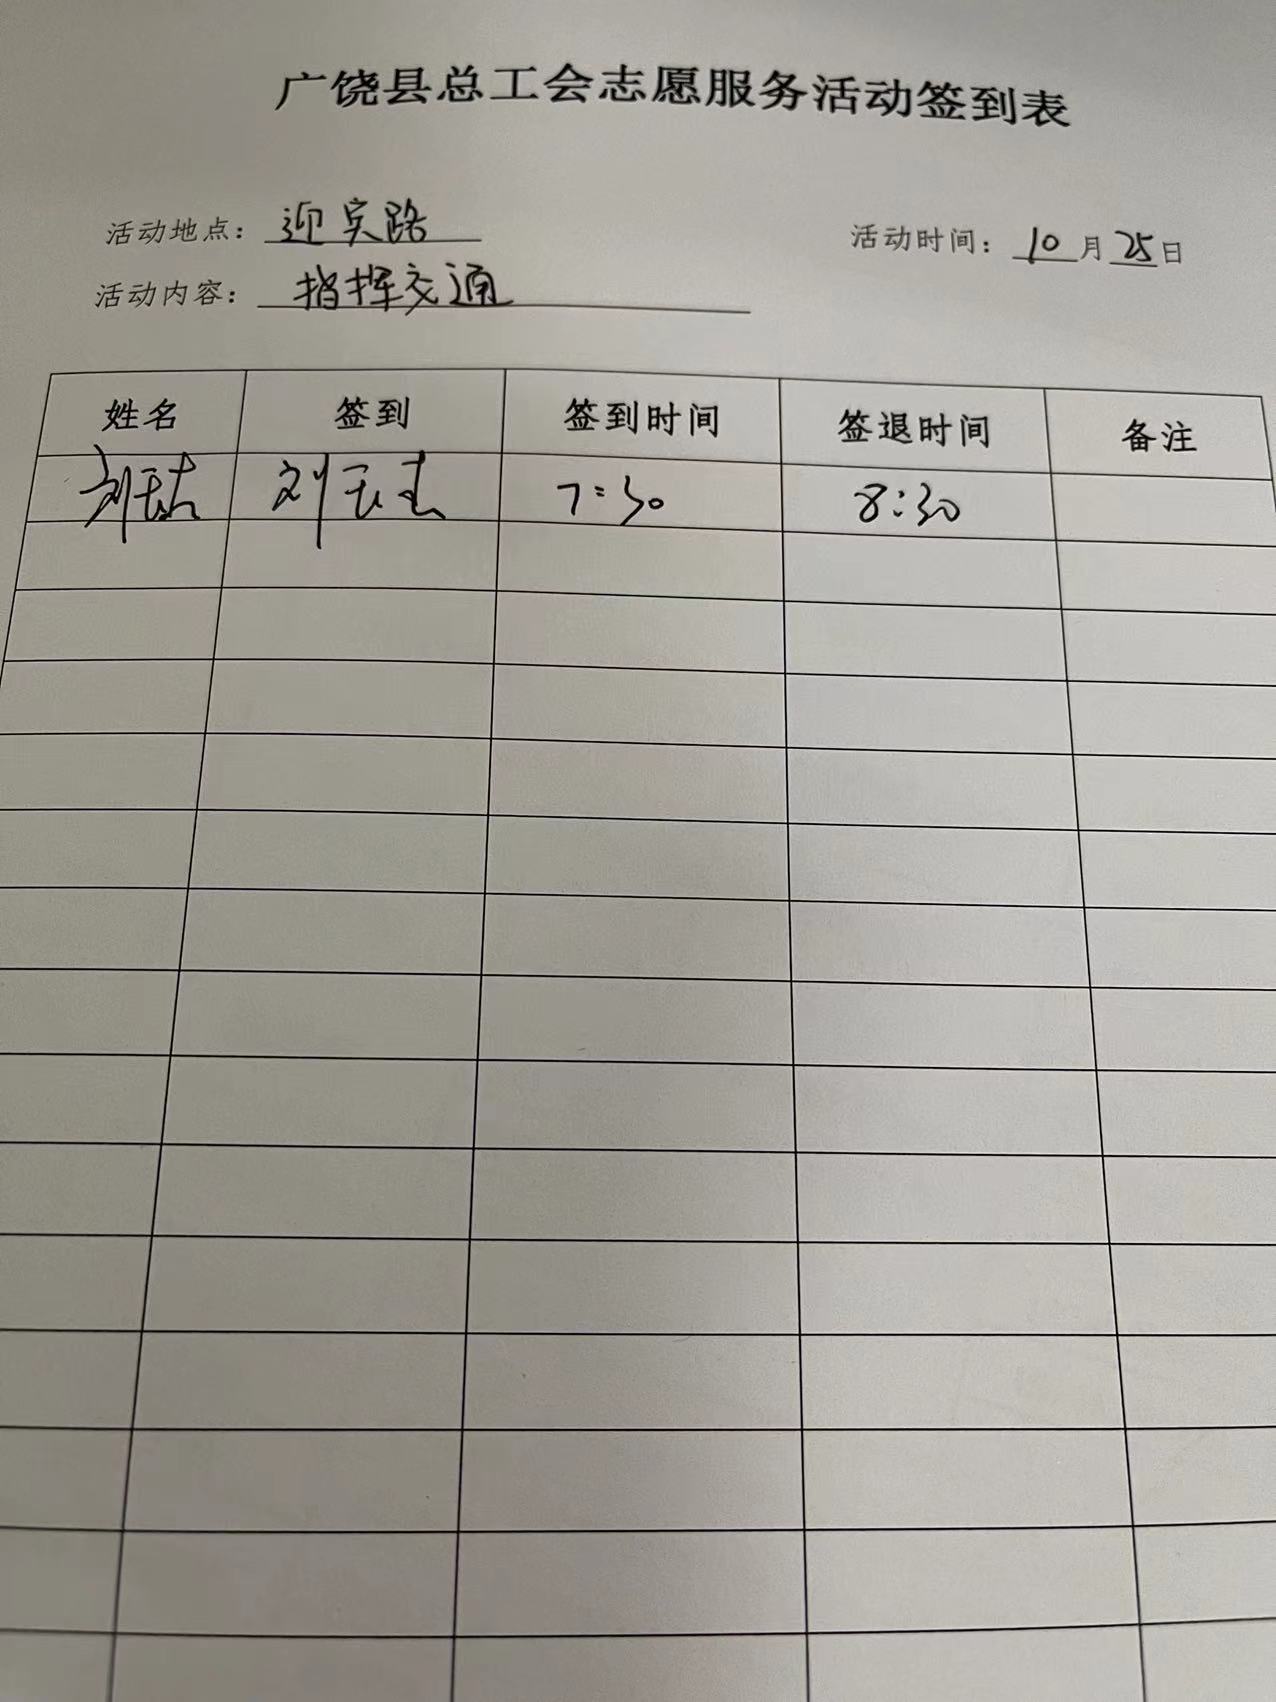 广饶县总工会志愿服务活动签到表
活动地点：迎宾路 活动时间：10月25日
活动内容：指挥交通
姓名 签到 签到时间 签退时间 备注
刘 刘 7:30 8:30